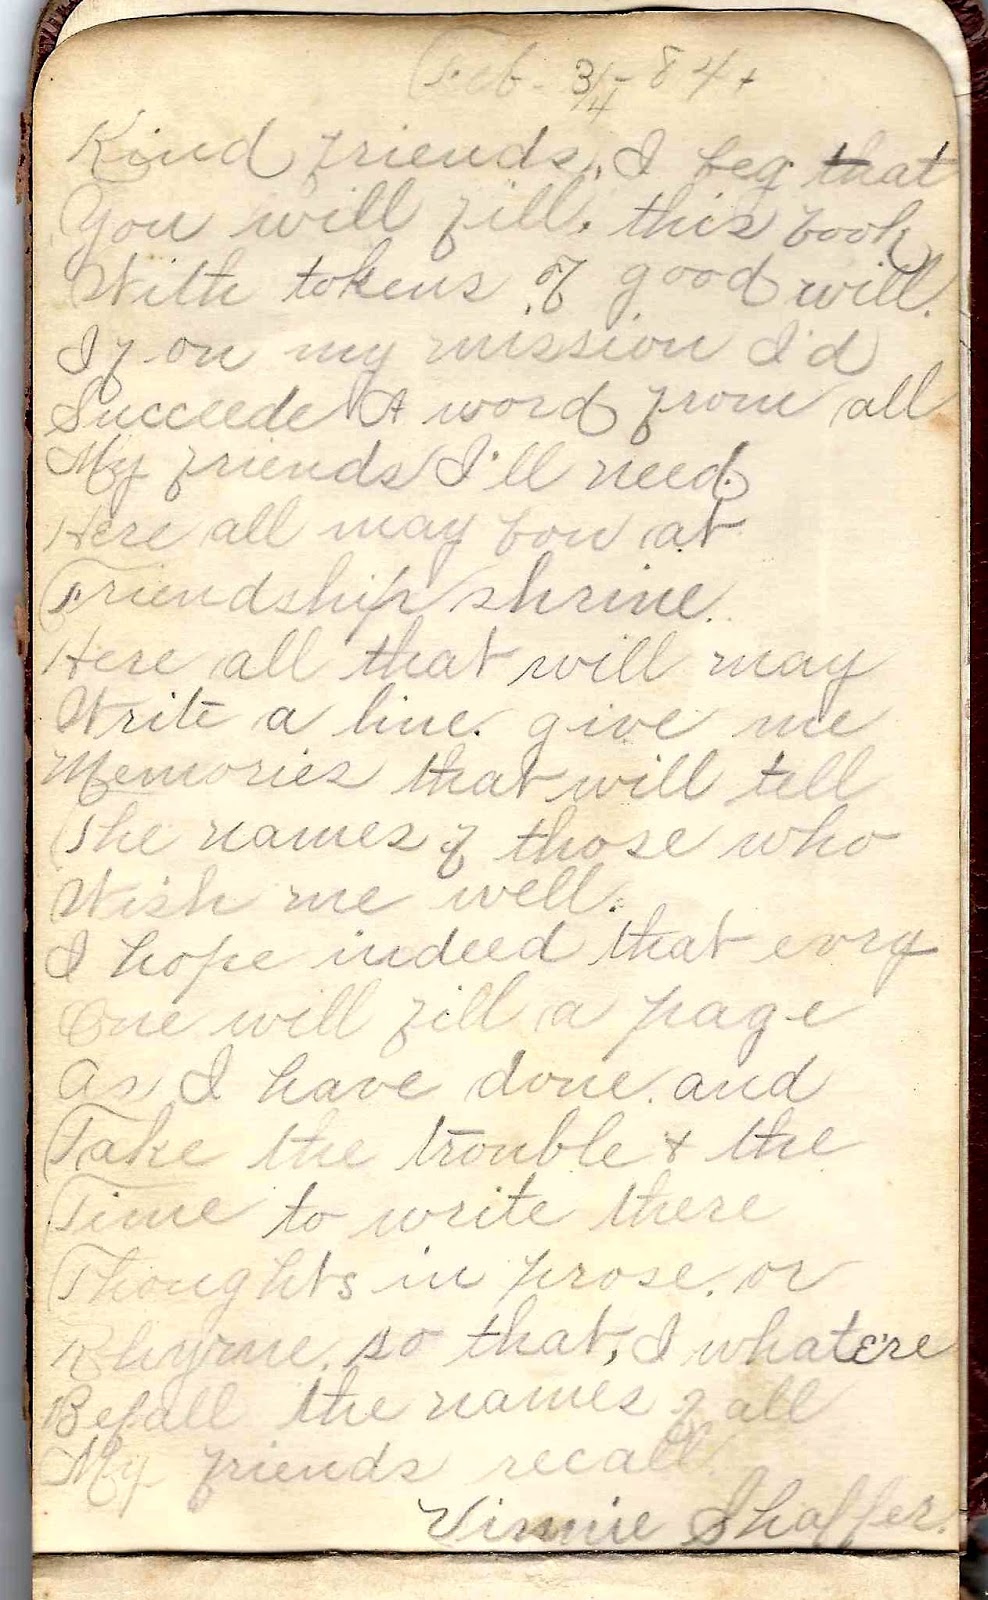 Feb - 3/4 - 84 +
Kind friends, I beg that
You will fill, this book
With tokens of good will.
If on my mission I'd
Succeede A word from all
My friends I'll need.
Here all may bow at
Friendship shrine.
Here all that will may
Write a line. give me
Memories that will tell
The names of those who
Wish me well.
I hope indeed that evry
One will fill a page
As I have done. and
Take the trouble & the
Time to write there
Thoughts in prose. or
Rhyme. so that, I whate're
Befall the names of all
My friends recall.
Vinnie Shaffer.